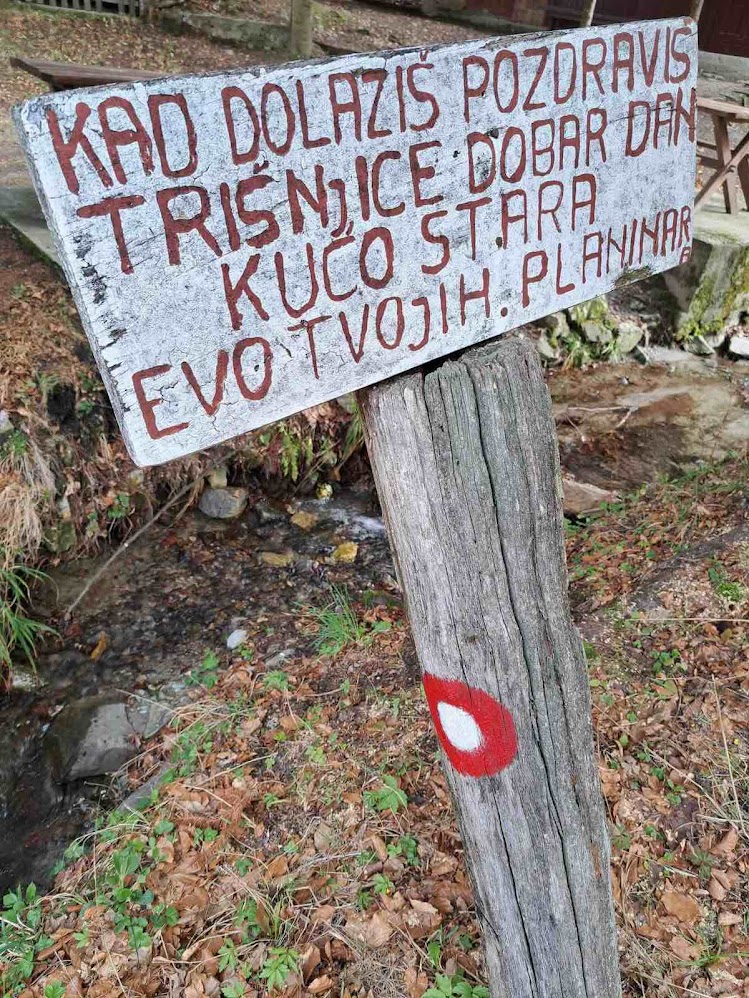 KAD DOLAZIŠ POZDRAVIŠ
TRIŠNjICE DOBAR DAN
KUĆO STARA
EVO TVOJIH. PLANINAR
A